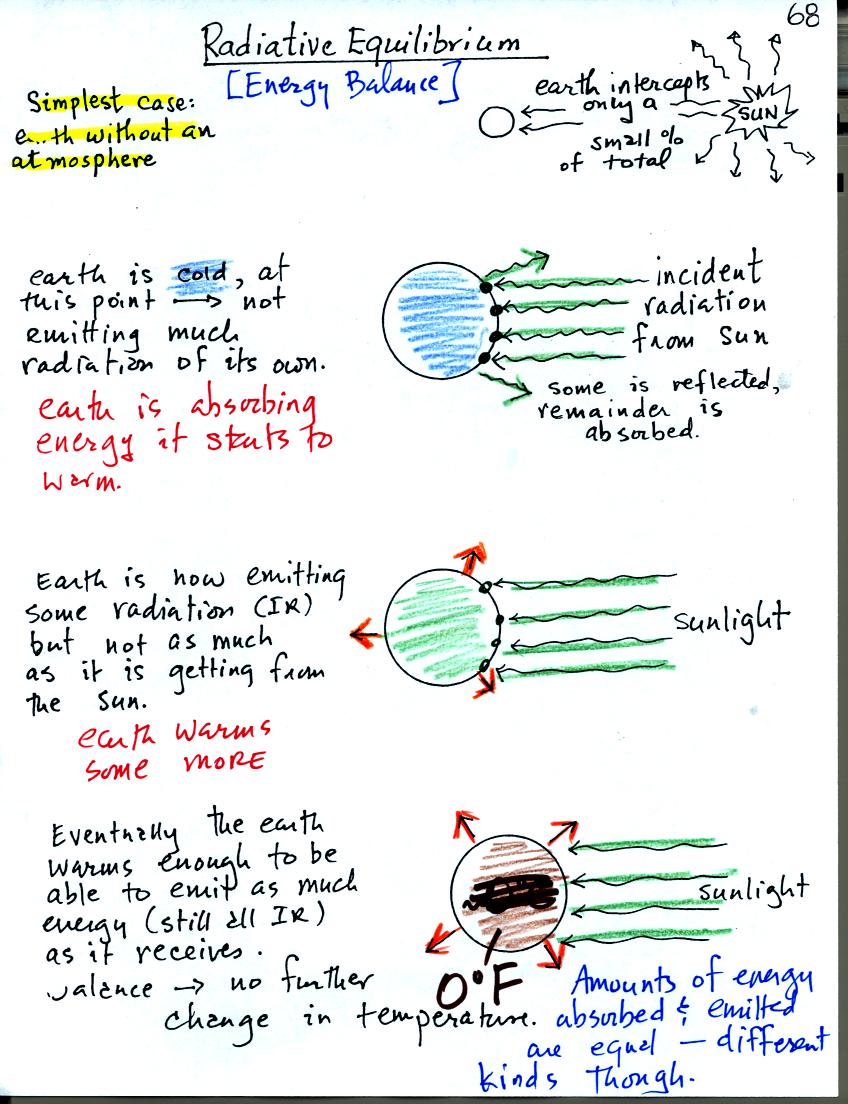 68
Radiative Equilibrium
[Energy Balance]
Simplest case:
e...th without an
atmosphere
earth intercepts
only a
small %
of total
SUN
earth is cold, at
this point → not
emitting much
radiation of its own.
earth is absorbing
energy it starts to
warm.
incident
radiation
from Sun
some is reflected,
remainder is
absorbed.
Earth is now emitting
some radiation (IR)
but not as much
as it is getting from
the Sun.
earth warms
some MORE
sunlight
Eventually the earth
warms enough to be
able to emit as much
energy (still all IR)
as it receives.
balance → no further
change in temperature.
sunlight
0°F
Amounts of energy
absorbed & emitted
are equal — different
kinds though.